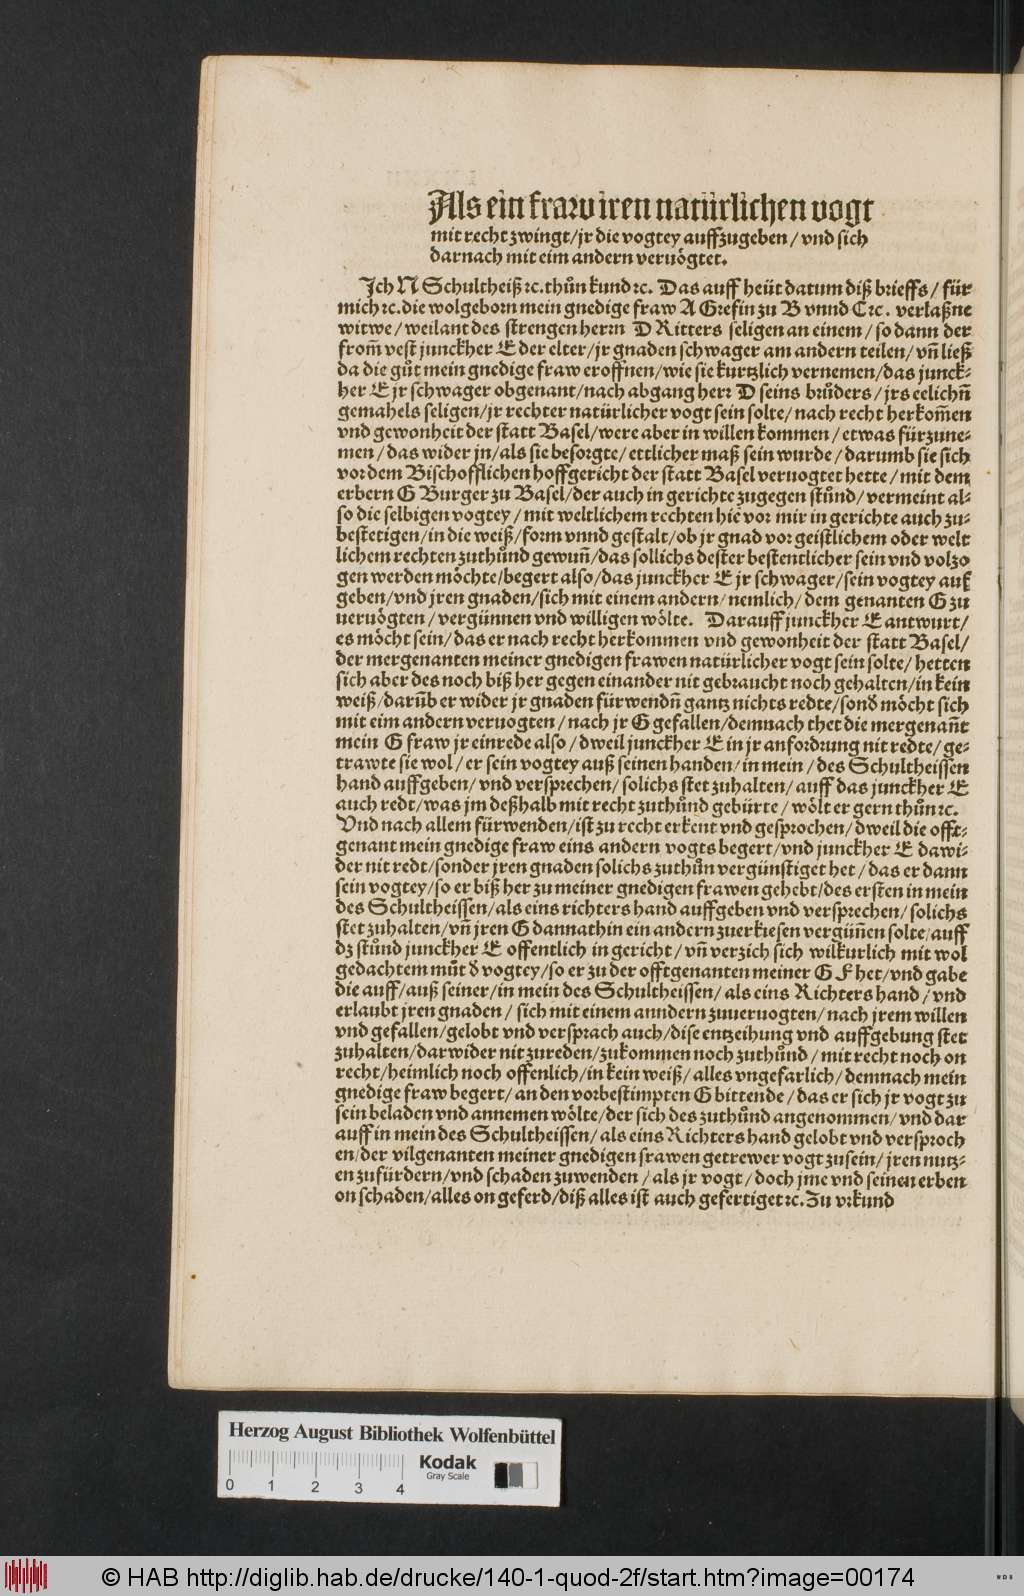 Als ein fraw iren natürlichen vogt
mit recht zwingt/ jr die vogtey auffzugeben / vnd sich
darnach mit eim andern veruögtet.
Ich N Schultheiß ꝛc. thůn kund ꝛc. Das auff heüt datum diß brieffs / für
mich ꝛc. die wolgeborn mein gnedige fraw A Grefin zu B vnnd C ꝛc. verlaßne
witwe / weilant des strengen herrn D Ritters seligen an einem / so dann der
from̃ vest junckher E der elter / jr gnaden schwager am andern teilen / vñ ließ
da die gůt mein gnedige fraw eroffnen / wie sie kurtzlich vernemen / das junck-
her E jr schwager obgenant / nach abgang herr D seins brůders / jrs eelichñ
gemahels seligen / jr rechter natürlicher vogt sein solte / nach recht herkom̃en
vnd gewonheit der statt Basel / were aber in willen kommen / etwas fürzune-
men / das wider jn / als sie besorgte / ettlicher maß sein wurde / darumb sie sich
vor dem Bischofflichen hoffgericht der statt Basel veruogtet hette / mit dem
erbern G Burger zu Basel / der auch in gerichte zugegen stůnd / vermeint al-
so die selbigen vogtey / mit weltlichem rechten hie vor mir in gerichte auch zu-
bestetigen / in die weiß / form vnnd gestalt / ob jr gnad vor geistlichem oder welt
lichem rechten zuthůnd gewuñ / das sollichs dester bestentlicher sein vnd volzo
gen werden möchte / begert also / das junckher E jr schwager / sein vogtey auf
geben / vnd jren gnaden / sich mit einem andern / nemlich / dem genanten G zu
ueruögten / vergünnen vnd willigen wölte. Darauff junckher E antwurt /
es möcht sein / das er nach recht herkommen vnd gewonheit der statt Basel /
der mergenanten meiner gnedigen frawen natürlicher vogt sein solte / hetten
sich aber des noch biß her gegen einander nit gebraucht noch gehalten / in kein
weiß / darüb er wider jr gnaden fürwendñ gantz nichts redte / sond̕ möcht sich
mit eim andern veruogten / nach jr G gefallen / demnach thet die mergenañt
mein G fraw jr einrede also / dweil junckher E in jr anfordrung nit redte / ge-
trawte sie wol / er sein vogtey auß seinen handen / in mein / des Schultheissen
hand auffgeben / vnd versprechen / solichs stet zuhalten / auff das junckher E
auch redt / was jm deßhalb mit recht zuthůnd gebürte / wölt er gern thůn ꝛc.
Vnd nach allem fürwenden / ist zu recht erkent vnd gesprochen / dweil die offt-
genant mein gnedige fraw eins andern vogts begert / vnd junckher E dawi-
der nit redt / sonder jren gnaden solichs zuthůn vergünstiget het / das er dann
sein vogtey / so er biß her zu meiner gnedigen frawen gehebt / des ersten in mein
des Schultheissen / als eins richters hand auffgeben vnd versprechen / solichs
stet zuhalten / vñ jren G dannathin ein andern zuerkiesen vergüñen solte / auff
dz stůnd junckher E offentlich in gericht / vñ verzich sich wilkurlich mit wol
gedachtem můt d̕ vogtey / so er zu der offtgenanten meiner G F het / vnd gabe
die auff / auß seiner / in mein des Schultheissen / als eins Richters hand / vnd
erlaubt jren gnaden / sich mit einem anndern zuueruogten / nach jrem willen
vnd gefallen / gelobt vnd versprach auch / dise entzeihung vnd auffgebung stet
zuhalten / darwider nit zureden / zukommen noch zuthůnd / mit recht noch on
recht / heimlich noch offenlich / in kein weiß / alles vngefarlich / demnach mein
gnedige fraw begert / an den vorbestimpten G bittende / das er sich jr vogt zu
sein beladen vnd annemen wölte / der sich des zuthůnd angenommen / vnd dar
auff in mein des Schultheissen / als eins Richters hand gelobt vnd versproch
en / der vilgenanten meiner gnedigen frawen getrewer vogt zusein / jren nutz-
en zufürdern / vnd schaden zuwenden / als jr vogt / doch jme vnd seinen erben
on schaden / alles on geferd / diß alles ist auch gefertiget ꝛc. Zu vrkund
Herzog August Bibliothek Wolfenbüttel
Kodak
Gray Scale
0 1 2 3 4
© HAB http://diglib.hab.de/drucke/140-1-quod-2f/start.htm?image=00174